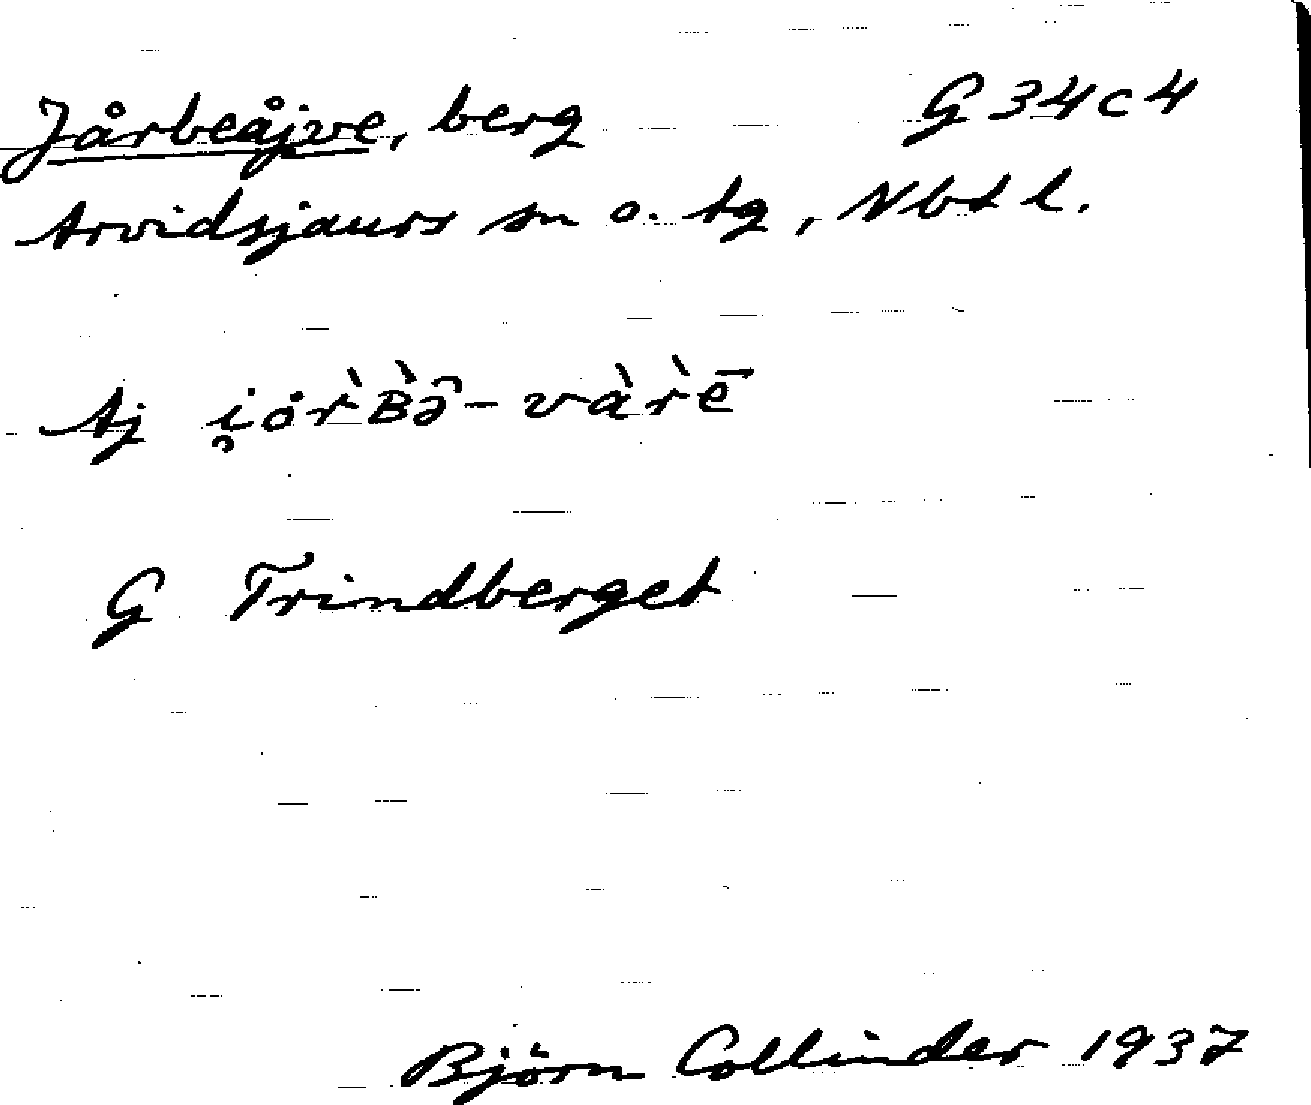 Jårbeåjve, berg G34c4
Arvidsjaurs sn o. tg, Nbt l.
Aj i̯år̀B̀ə̑-vàr̀ē
G Trindberget
Björn Collinder 1937